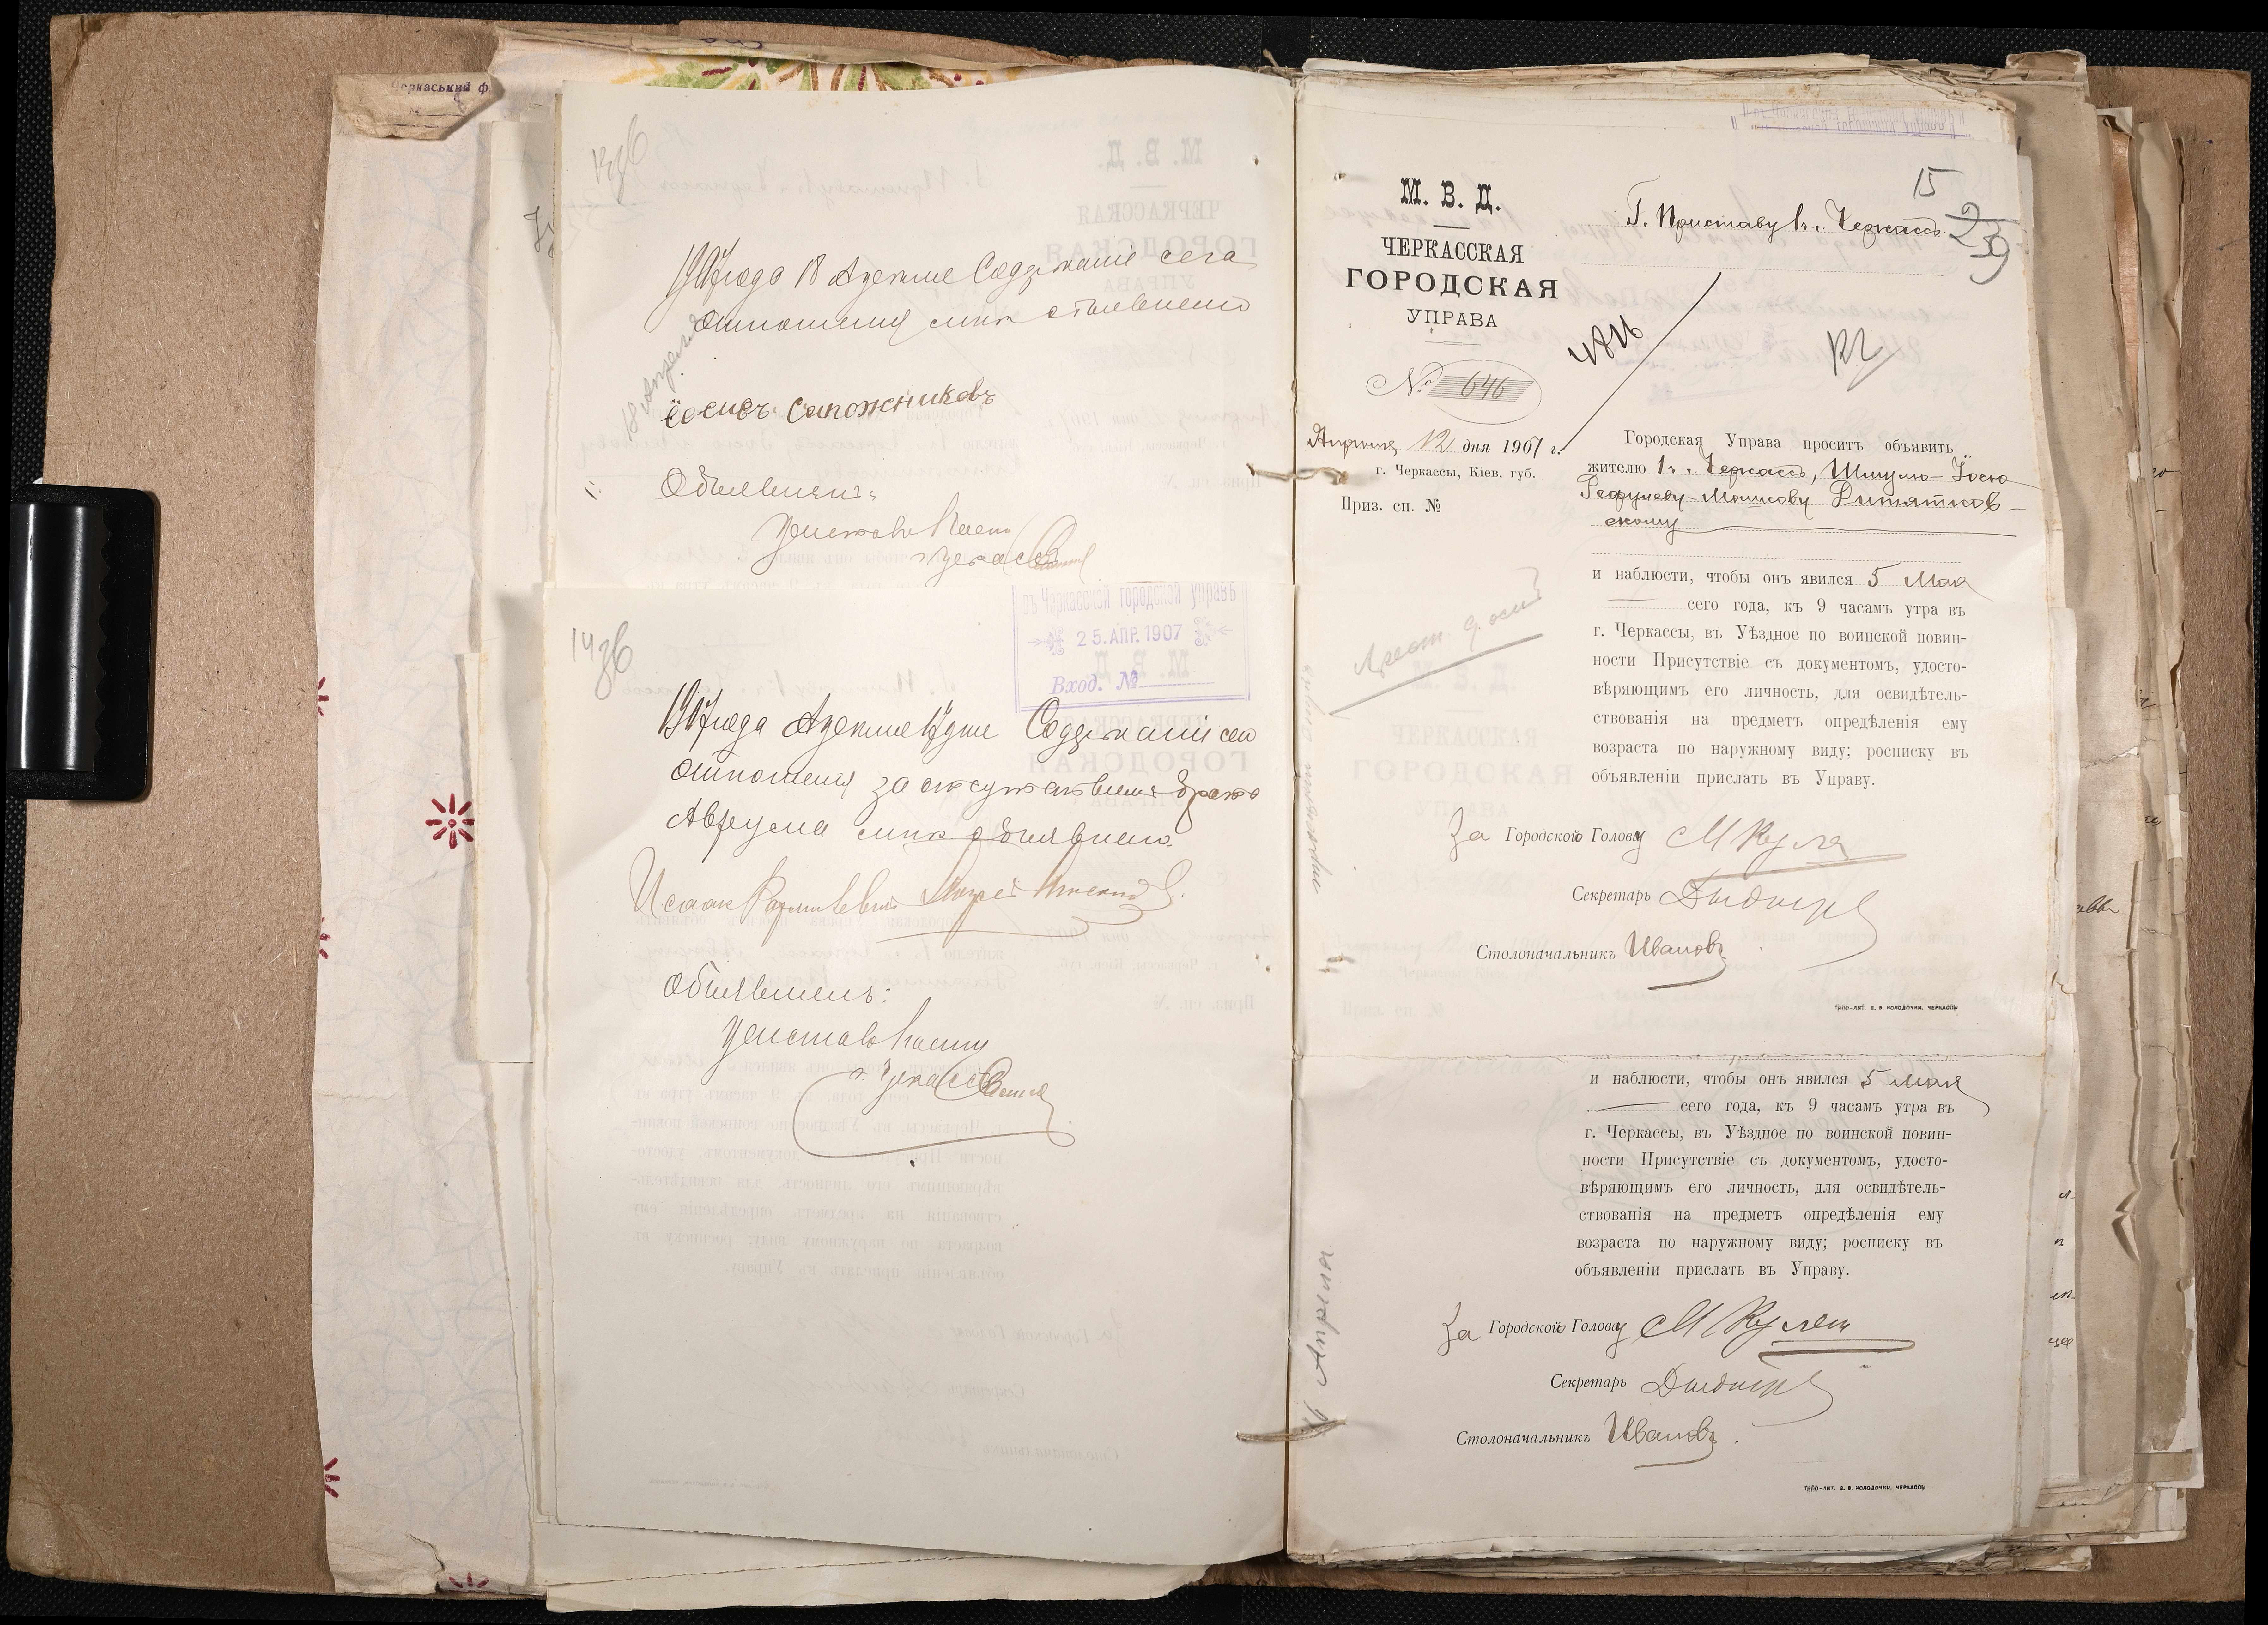 Черкаський ф
13 зв
1907 года 18 Апреля Содержание сего
отношения мне объявлено
18 Апреля
Иосифъ Сапожниковъ
Объявилъ:
Приставъ I части
г. Черкассъ
14 зв
въ Черкасской городской управѣ
25. АПР. 1907
Вход. №
1907 года Апреля дня Содержаніе сего
отношения за отсутствием брата
Абрума мне объявлено
Исаак
Объявилъ:
Приставъ I части
г. Черкассъ
М. В. Д.
ЧЕРКАССКАЯ
ГОРОДСКАЯ
УПРАВА
№ 646
Апреля 12 дня 1907 г.
г. Черкассы, Кіев. губ.
Приз. сп. №
15
Г. Приставу 1 ч. г. Черкассъ
239
Городская Управа проситъ объявить
жителю г. Черкассъ, Шмулю-Іосю
скому
и наблюсти, чтобы онъ явился 5 Мая
сего года, къ 9 часамъ утра въ
г. Черкассы, въ Уѣздное по воинской повин-
ности Присутствіе съ документомъ, удосто-
вѣряющимъ его личность, для освидѣтель-
ствованія на предметъ опредѣленія ему
возраста по наружному виду; росписку въ
объявленіи прислать въ Управу.
За Городского Голову
Секретарь
Столоначальникъ Ивановъ
ТИПО-ЛИТ. В. В. КОЛОДОЧКИ, ЧЕРКАССЫ
и наблюсти, чтобы онъ явился 5 Мая
сего года, къ 9 часамъ утра въ
г. Черкассы, въ Уѣздное по воинской повин-
ности Присутствіе съ документомъ, удосто-
вѣряющимъ его личность, для освидѣтель-
ствованія на предметъ опредѣленія ему
возраста по наружному виду; росписку въ
объявленіи прислать въ Управу.
16 Апреля
За Городского Голову
Секретарь
Столоначальникъ Ивановъ.
ТИПО-ЛИТ. В. В. КОЛОДОЧКИ, ЧЕРКАССЫ